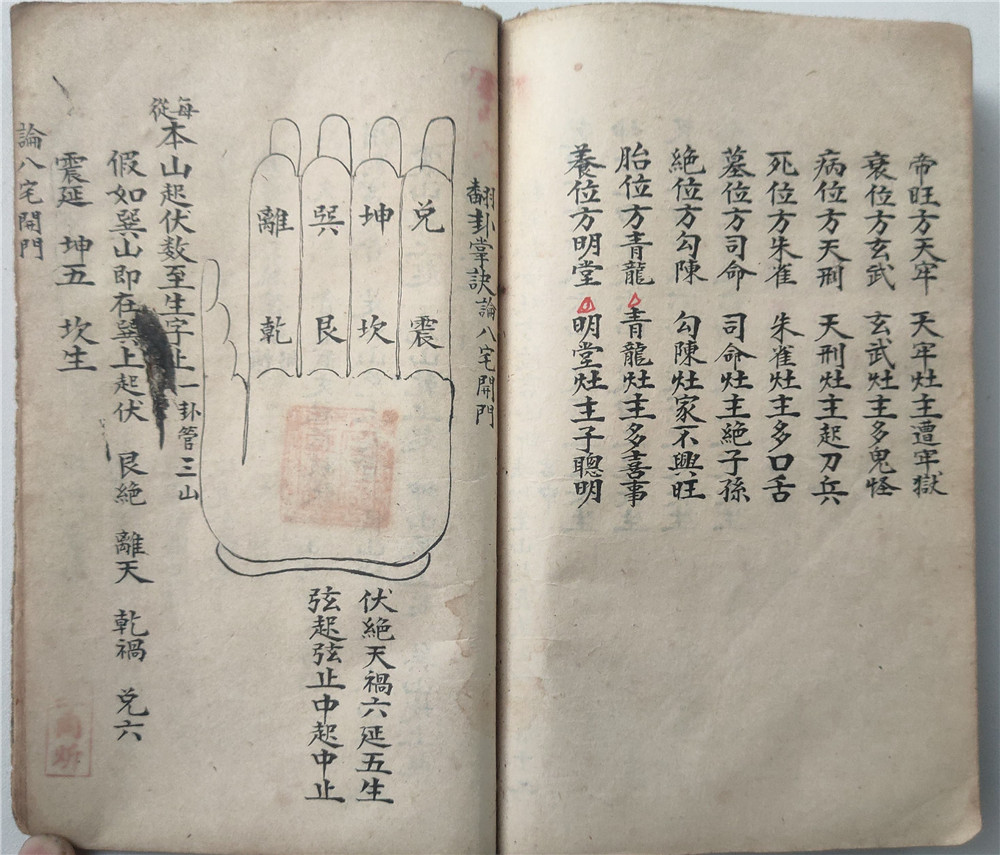 帝旺方天牢　天牢灶主遭牢獄
衰位方玄武　玄武灶主多鬼怪
病位方天刑　天刑灶主起刀兵
死位方朱雀　朱雀灶主多口舌
墓位方司命　司命灶主絕子孫
絕位方勾陳　勾陳灶家不興旺
胎位方青龍　青龍灶主多喜事
養位方明堂　明堂灶主子聰明
翻卦掌訣論八宅開門
兌　震
坤　坎
巽　艮
離　乾
伏絕天禍六延五生
弦起弦止中起中止
每從本山起伏数至生字止一卦管三山
假如巽山即在巽上起伏　艮絕　離天　乾禍　兌六
震延　坤五　坎生
論八宅開門